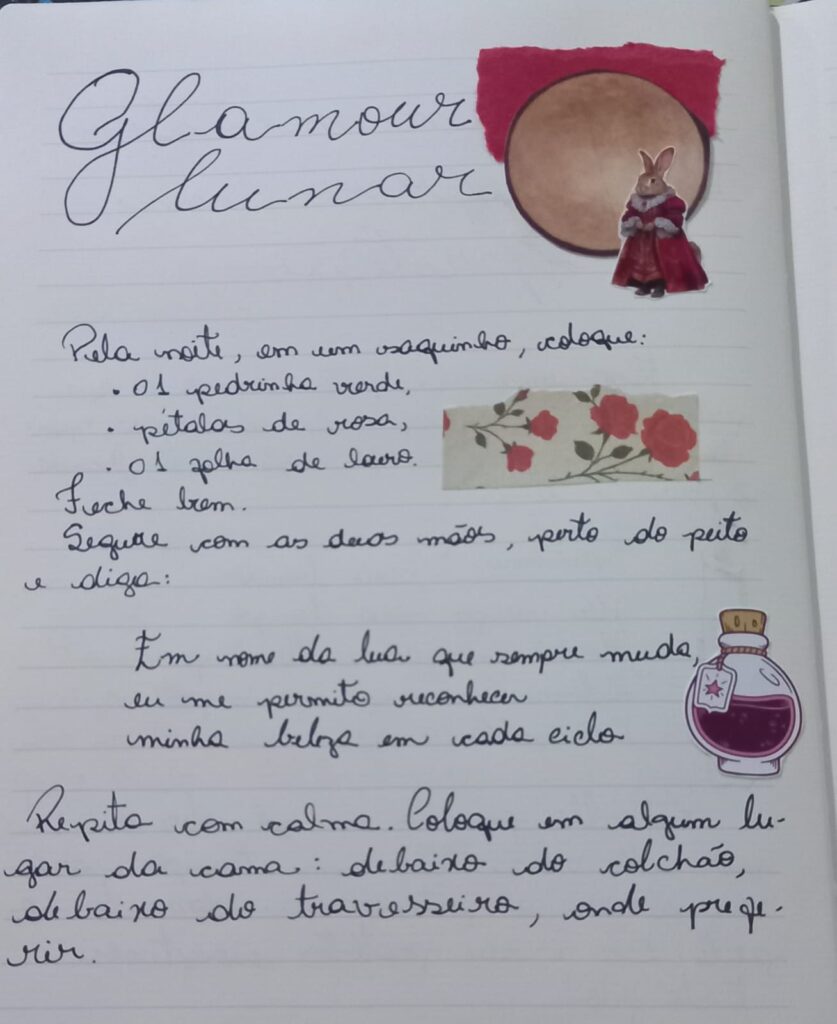 Glamour
lunar
Pela noite, em um saquinho, coloque:
• 01 pedrinha verde,
• pétalas de rosa,
• 01 folha de louro.
Feche bem.
Segure com as duas mãos, perto do peito
e diga:
Em nome da lua que sempre muda,
eu me permito reconhecer
minha beleza em cada ciclo
Repita com calma. Coloque em algum lu-
gar da cama: debaixo do colchão,
debaixo do travesseiro, onde prefe-
rir.